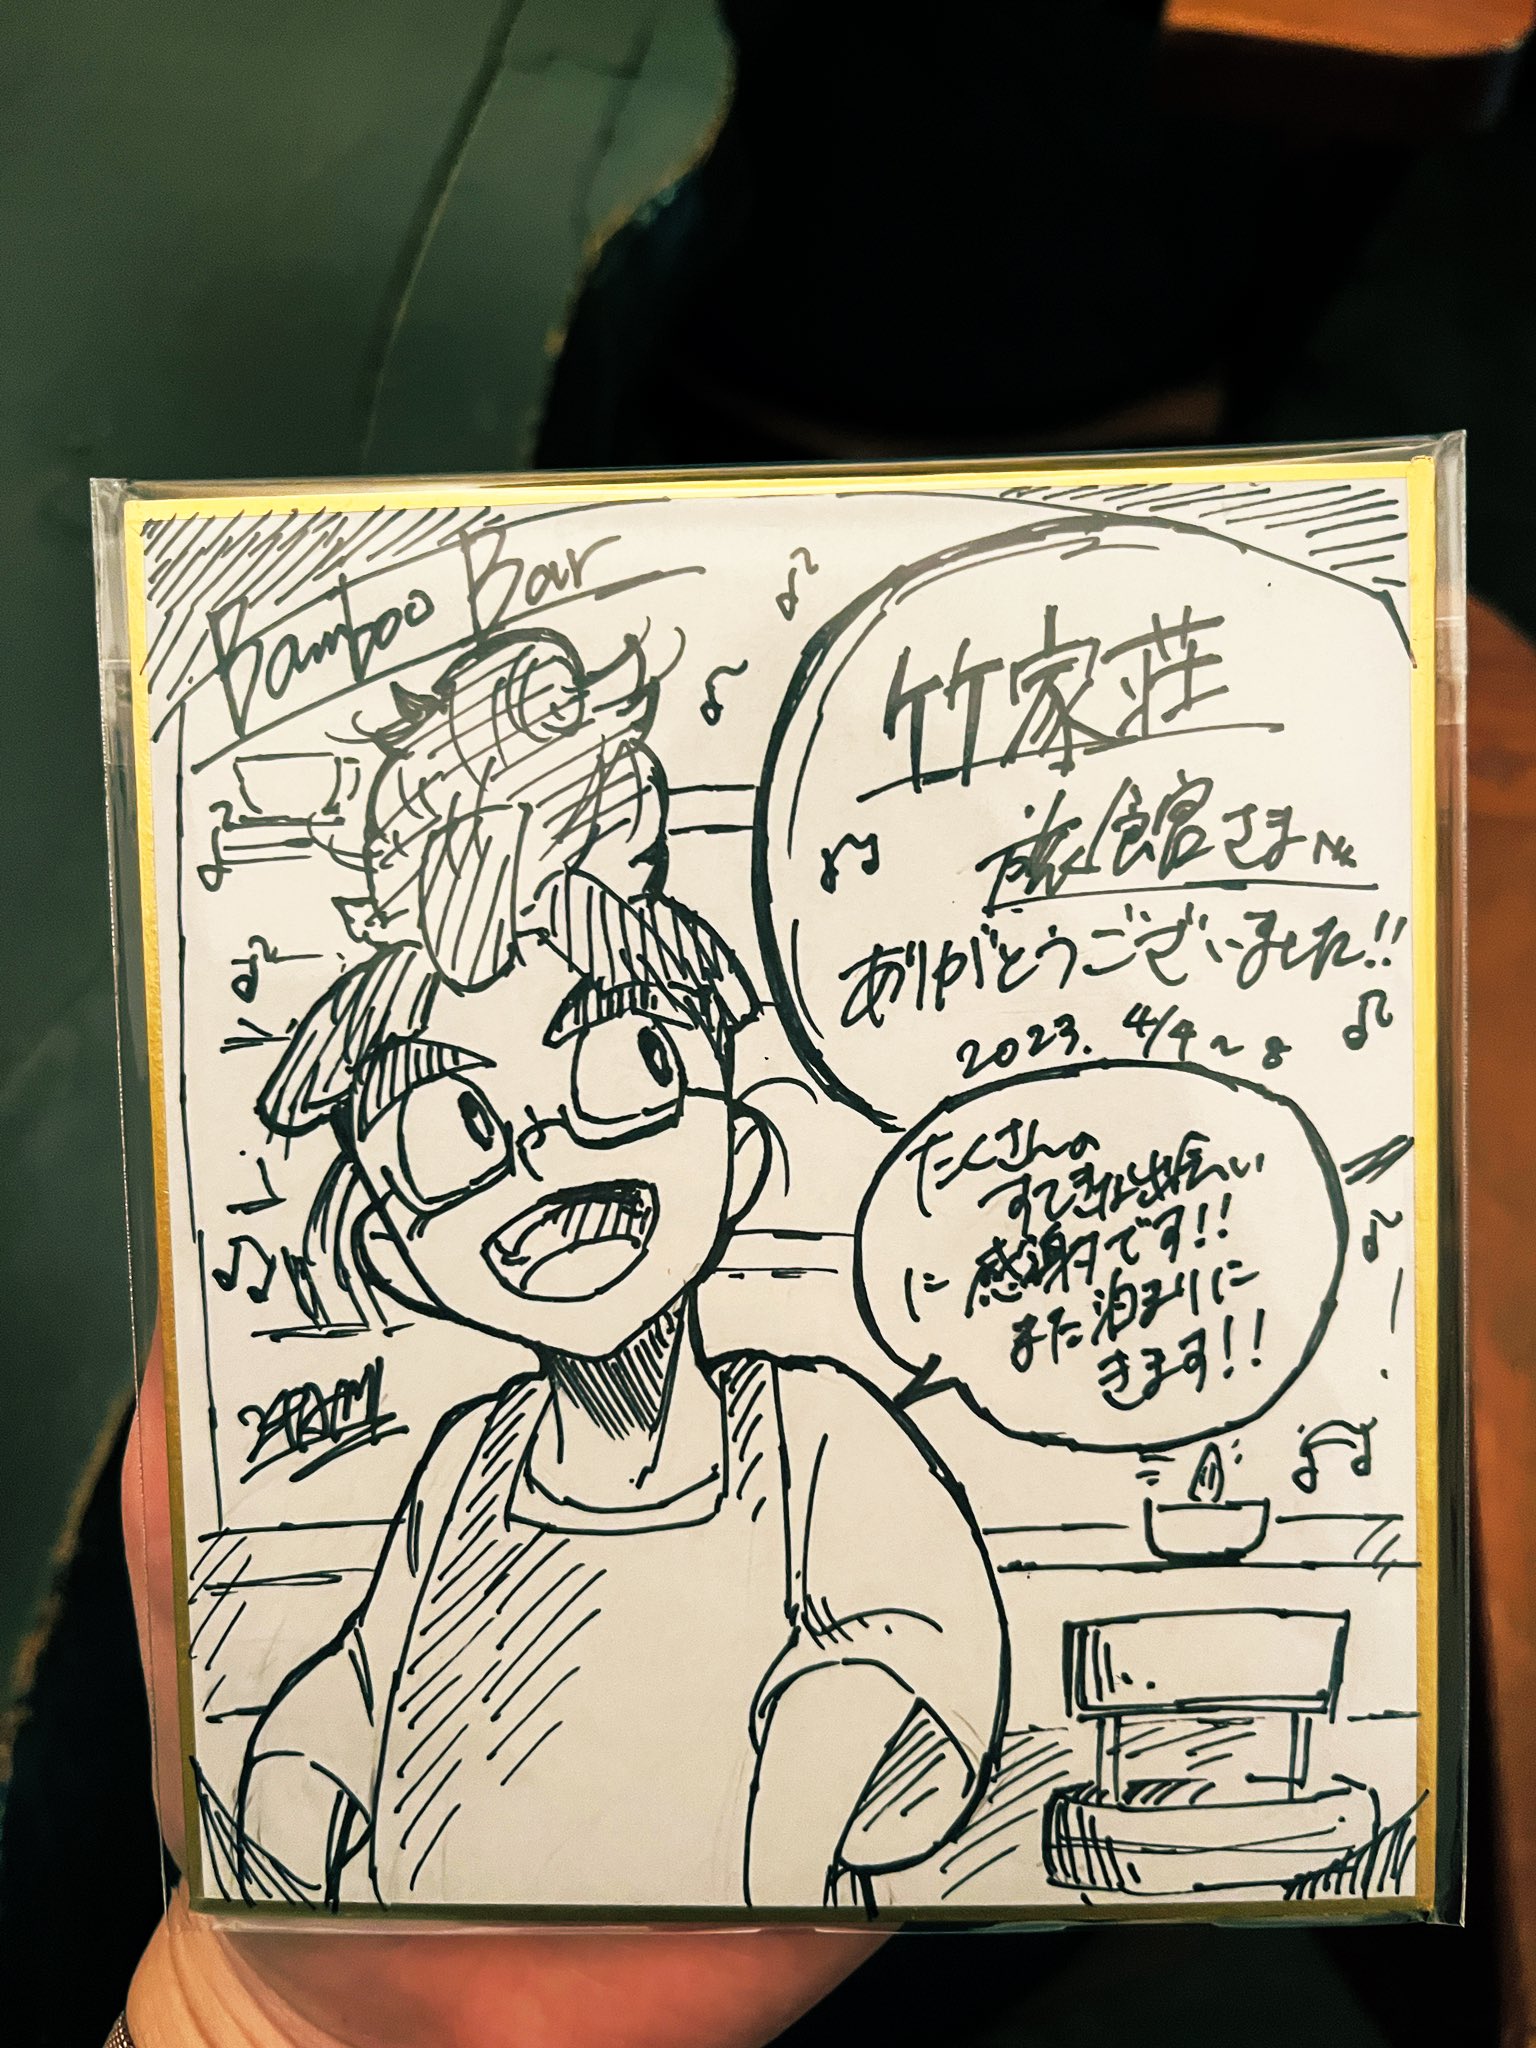 Bamboo Bar
竹家荘
旅館さま
ありがとうございました!!
2023. 4/4~8
たくさんの
すてきな出会い
に感謝です!!
また泊まりに
きます!!